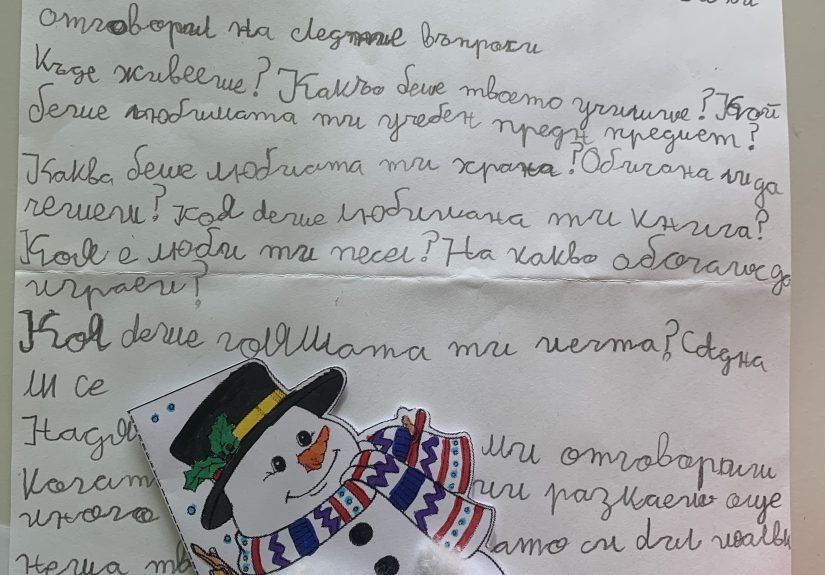 отговориш на следните въпроси
Къде живееше? Какво беше твоето училище? Кой
беше любимата ти учебен предн предмет?
Каква беше любиата ти храна? Обичана ли да
четеш? Коя беше любимана ти книга?
Коя е люби ти песен? На какво обочаше да
играеш?
Коя беше голямата ти мечта? Сбдна
ли се
Надя ми отговориш
Когат ми разкаеш още
много ато си бил малък
неща тв